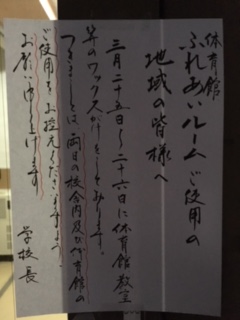 体育館
ふれあいルームご使用の
地域の皆様へ
三月二十五日〜二十六日に体育館教室
等のワックスがけをしております。
つきましては、両日の校舎内及び体育館の
ご使用をお控えくださいますよう、
お願い申し上げます
学校長